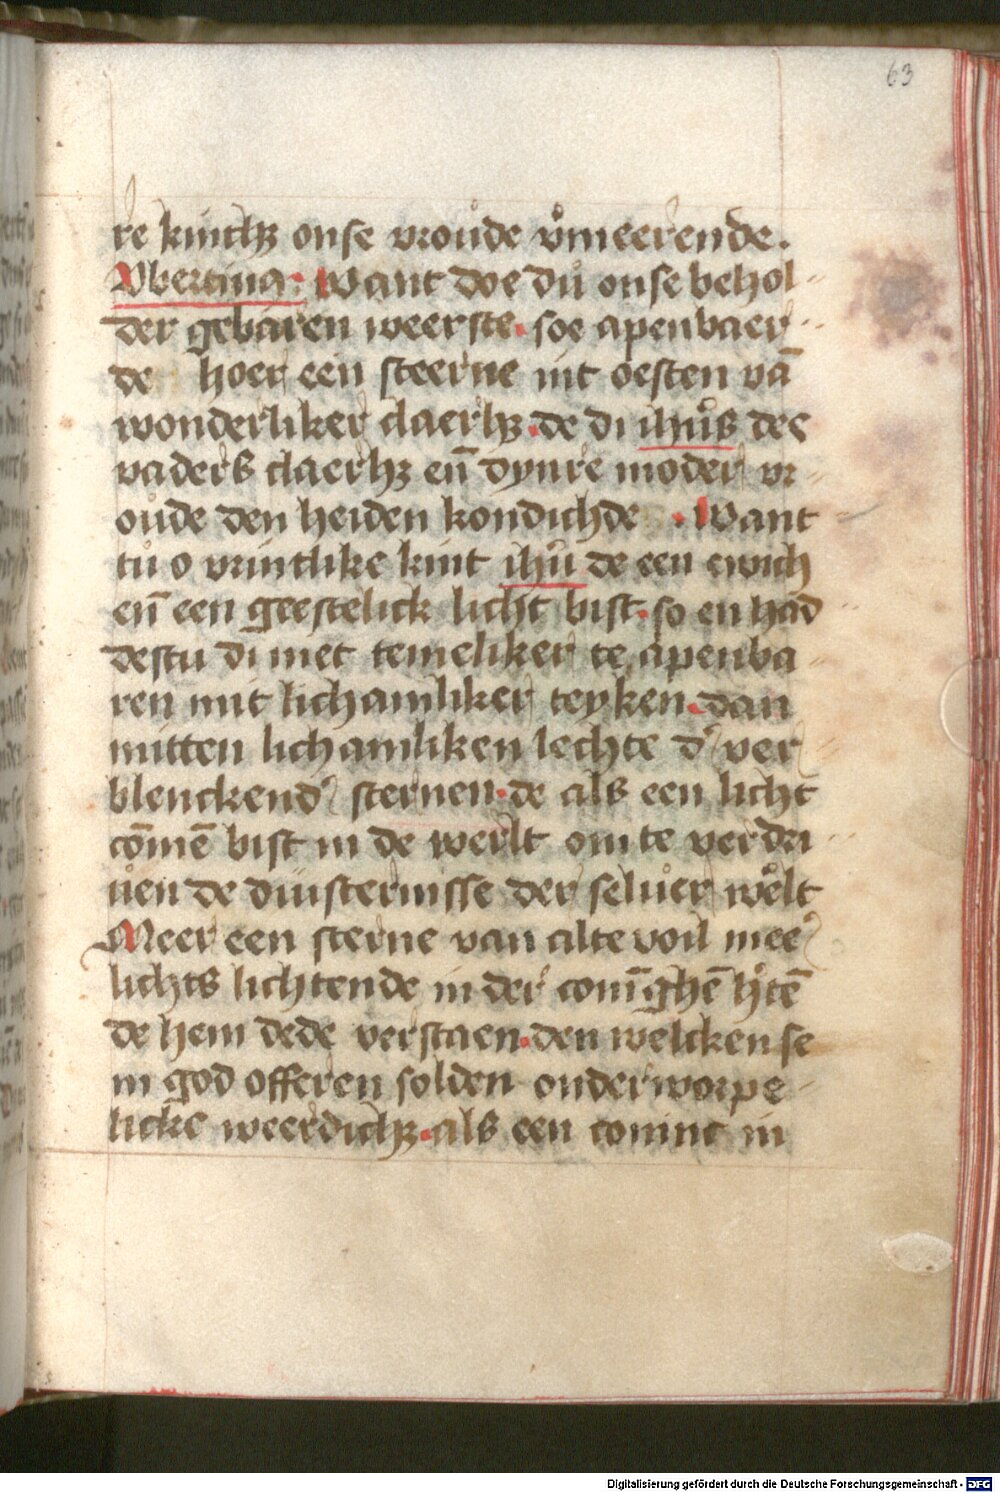 63
re kintheꝫ onse vroude v̊meerende.
Vbertina: Want doe du onse behol⸗
der gebaren weerste. soe apenbaer⸗
de hoer een steerne uit oesten vā
wonderliker claerhꝫ. de di ihūs des
vaders claerhꝫ en̄ dynre moder vr⸗
oude den heiden kondichde . Want
tu o vrintlike kint ihū de een ewich
en̄ een geestelick licht bist. so en had
destu di met temeliker te apenba⸗
ren mit lichamliker teyken. dan
mitten lichamliken lechte d' ver⸗
blenckend' sternen. de als een licht
cōmē bist in de werlt om te verdri⸗
uen de duisternisse der seluer ẘelt
Meer een sterne van alte voil mee'
lichts lichtende in der conīghē h'tē
de hem dede verstaen. den welcken se
in god offeren solden onderworpe⸗
licke weerdichꝫ. als een conint in
Digitalisierung gefördert durch die Deutsche Forschungsgemeinschaft - DFG